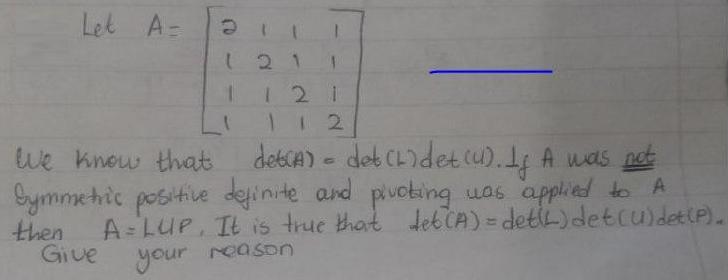 Let A= 2 1 1 1
1 2 1 1
1 1 2 1
1 1 1 2
We know that det(A) = det(L)det(U). If A was not
Symmetric positive definite and pivoting was applied to A
then A=LUP. It is true that det(A)=det(L)det(U)det(P).
Give your reason